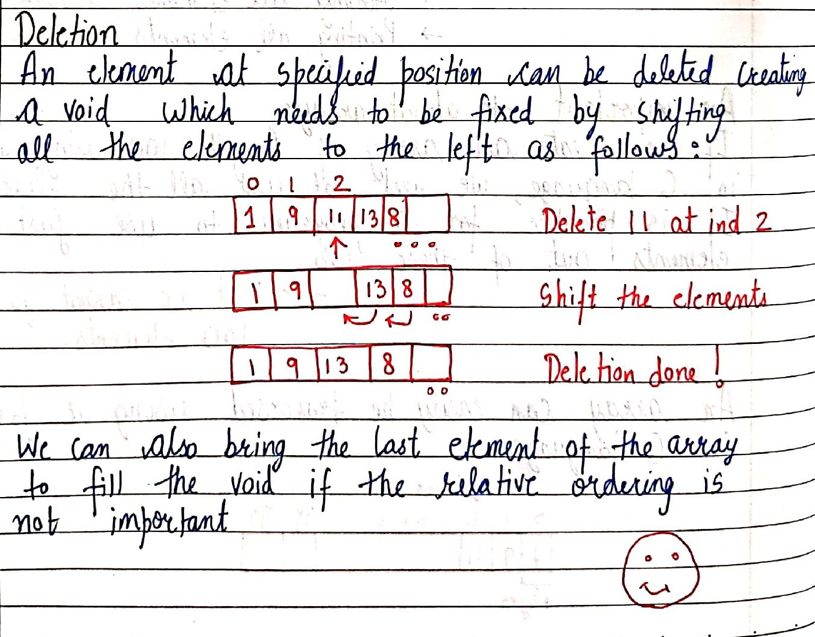 Deletion
An element at specified position can be deleted creating
a void which needs to be fixed by shifting
all the elements to the left as follows:
0 1 2
1 9 11 13 8 Delete 11 at ind 2
1 9 13 8 Shift the elements
1 9 13 8 Deletion done!
We can also bring the last element of the array
to fill the void if the relative ordering is
not important